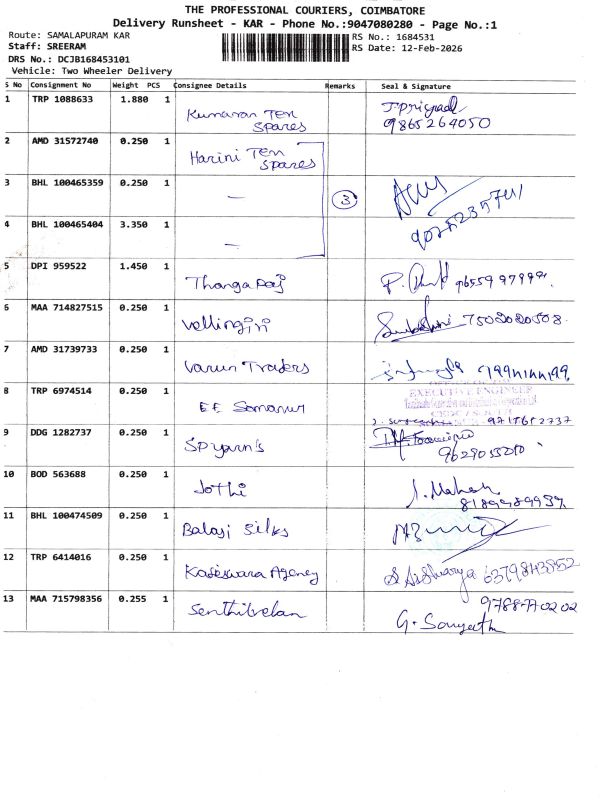 THE PROFESSIONAL COURIERS, COIMBATORE
Delivery Runsheet - KAR - Phone No.:9047080280 - Page No.:1
Route: SAMALAPURAM KAR
RS No.: 1684531
Staff: SREERAM
RS Date: 12-Feb-2026
DRS No.: DCJB168453101
Vehicle: Two Wheeler Delivery
S No Consignment No Weight PCS Consignee Details Remarks Seal & Signature
1 TRP 1088633 1.880 1 Kumaran Tex Spares
9865264050
2 AMD 31572740 0.250 1 Harini Tex Spares
3 BHL 100465359 0.250 1 — 3
4 BHL 100465404 3.350 1 —
5 DPI 959522 1.450 1 Thangaraj
6 MAA 714827515 0.250 1 Vellingiri
7 AMD 31739733 0.250 1 Varun Traders
8 TRP 6974514 0.250 1 EE Somanur
EXECUTIVE ENGINEER
9715652737
9 DDG 1282737 0.250 1 SP yarn's
10 BOD 563688 0.250 1 Jothi
J. Mahesh
11 BHL 100474509 0.250 1 Balaji Silks
12 TRP 6414016 0.250 1 Kadeswara Agency S. Aishwarya
13 MAA 715798356 0.255 1 Senthilvelan
G. Sangeetha